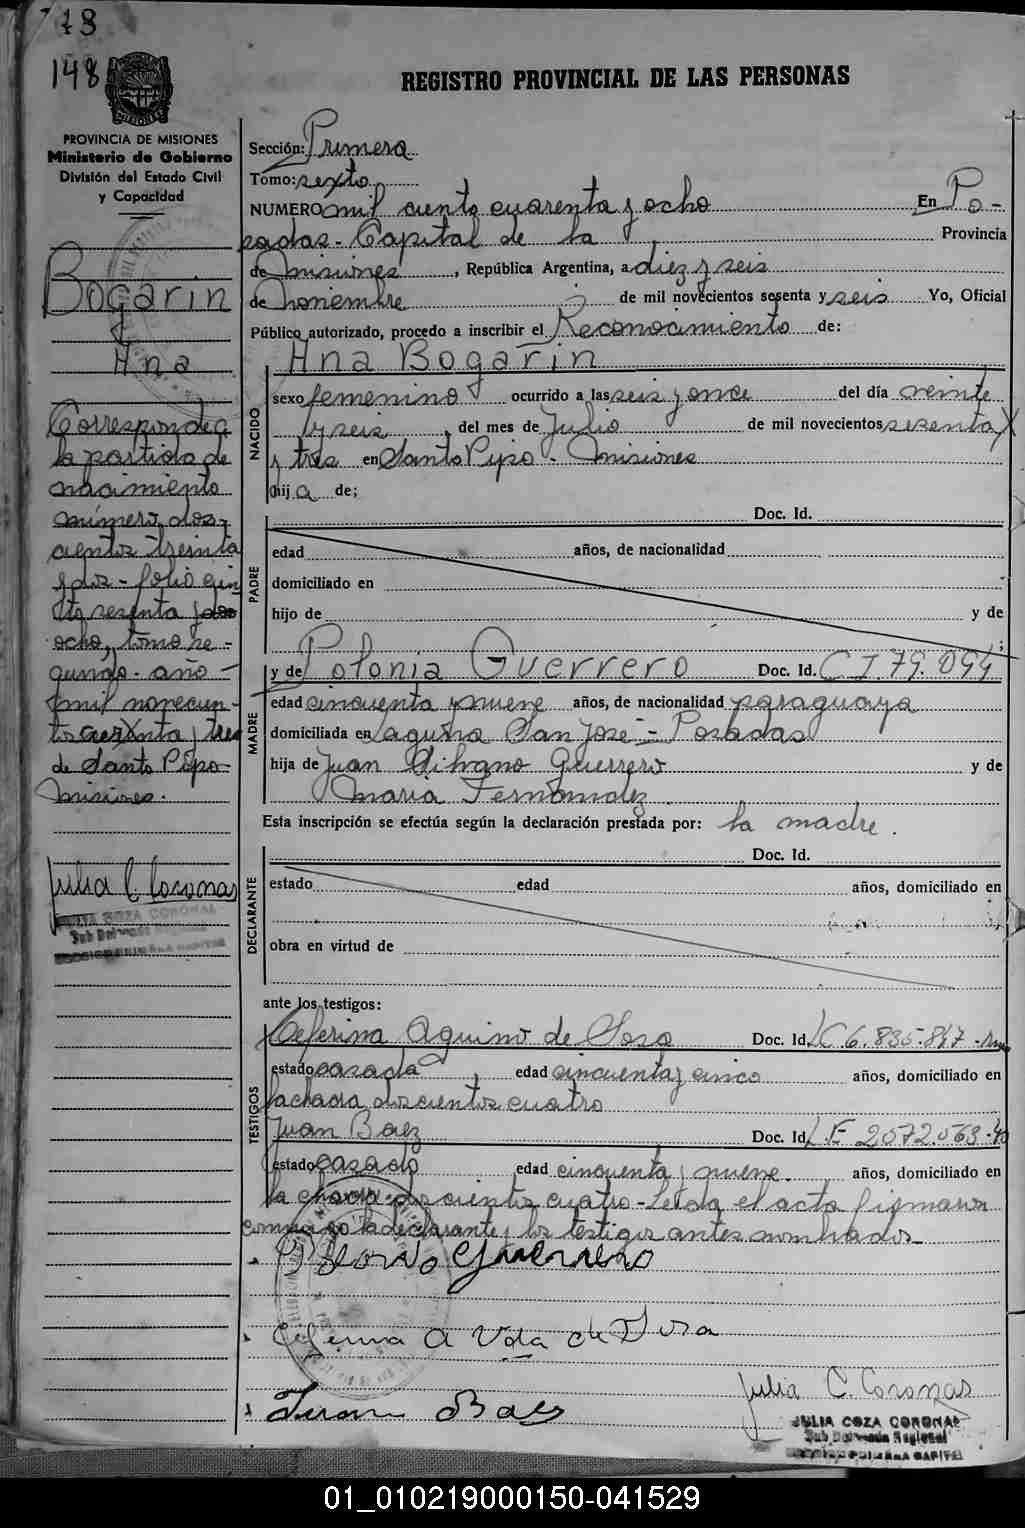 13
148
REGISTRO PROVINCIAL DE LAS PERSONAS
PROVINCIA DE MISIONES
Ministerio de Gobierno
División del Estado Civil
y Capacidad
Bogarin
Ana
Corresponde a
la partida de
nacimiento
número dos-
cientos treinta
y dos - folio cien
to sesenta y
ocho, tomo se-
gundo - año -
mil novecien-
tos sesenta y tres
de Santo Pipo
Misiones.
Julia C. Coronas
SECCION PRIMERA CAPITAL
Sección: Primera
Tomo: sexto
NUMERO mil ciento cuarenta y ocho En Po-
sadas - Capital de la Provincia
de Misiones, República Argentina, a diez y seis
de noviembre de mil novecientos sesenta y seis Yo, Oficial
Público autorizado, procedo a inscribir el Reconocimiento de:
NACIDO
Ana Bogarin
sexo femenino ocurrido a las seis y once del día veinte
y seis, del mes de Julio de mil novecientos sesenta
y tres en Santo Pipo - Misiones
hija de;
PADRE
Doc. Id.
edad años, de nacionalidad
domiciliado en
hijo de y de
;
MADRE
y de Polonia Guerrero Doc. Id. C I 79.094
edad cincuenta y nueve años, de nacionalidad paraguaya
domiciliada en Laguna San José - Posadas
hija de Juan Silvano Guerrero y de
Maria Fernandez
Esta inscripción se efectúa según la declaración prestada por: la madre.
DECLARANTE
Doc. Id.
estado edad años, domiciliado en
obra en virtud de
ante los testigos:
TESTIGOS
Ceferina Aquino de Sosa Doc. Id. LC 6.835.847
estado casada edad cincuenta y cinco años, domiciliado en
la chacra doscientos cuatro
Juan Baez Doc. Id. L.E 2072.063
estado casado edad cincuenta y nueve. años, domiciliado en
la chacra doscientos cuatro - Leida el acta firmaron
conmigo la declarante y los testigos antes nombrados
Guerrero
A Vda de Sosa
Juan Baes
Julia C. Coronas
JULIA COZA CORONAL
SECCION PRIMERA CAPITAL
01_010219000150-041529